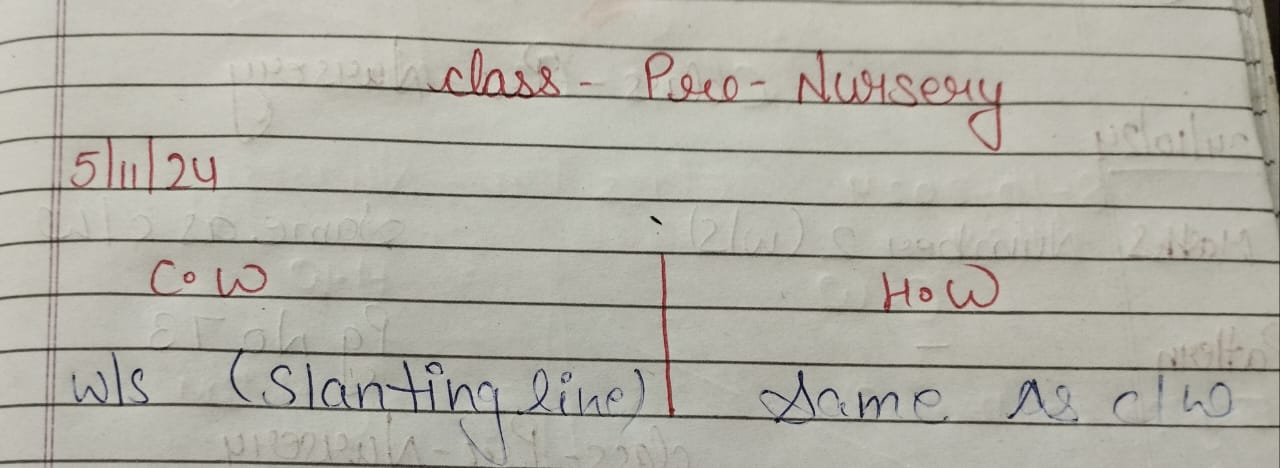 class - Pre - Nursery
5/11/24
C.W H.W
w/s (Slanting line) Same As c/w